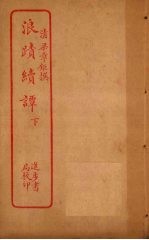 清梁章鉅撰
浪蹟續譚
下
進步書
局校印